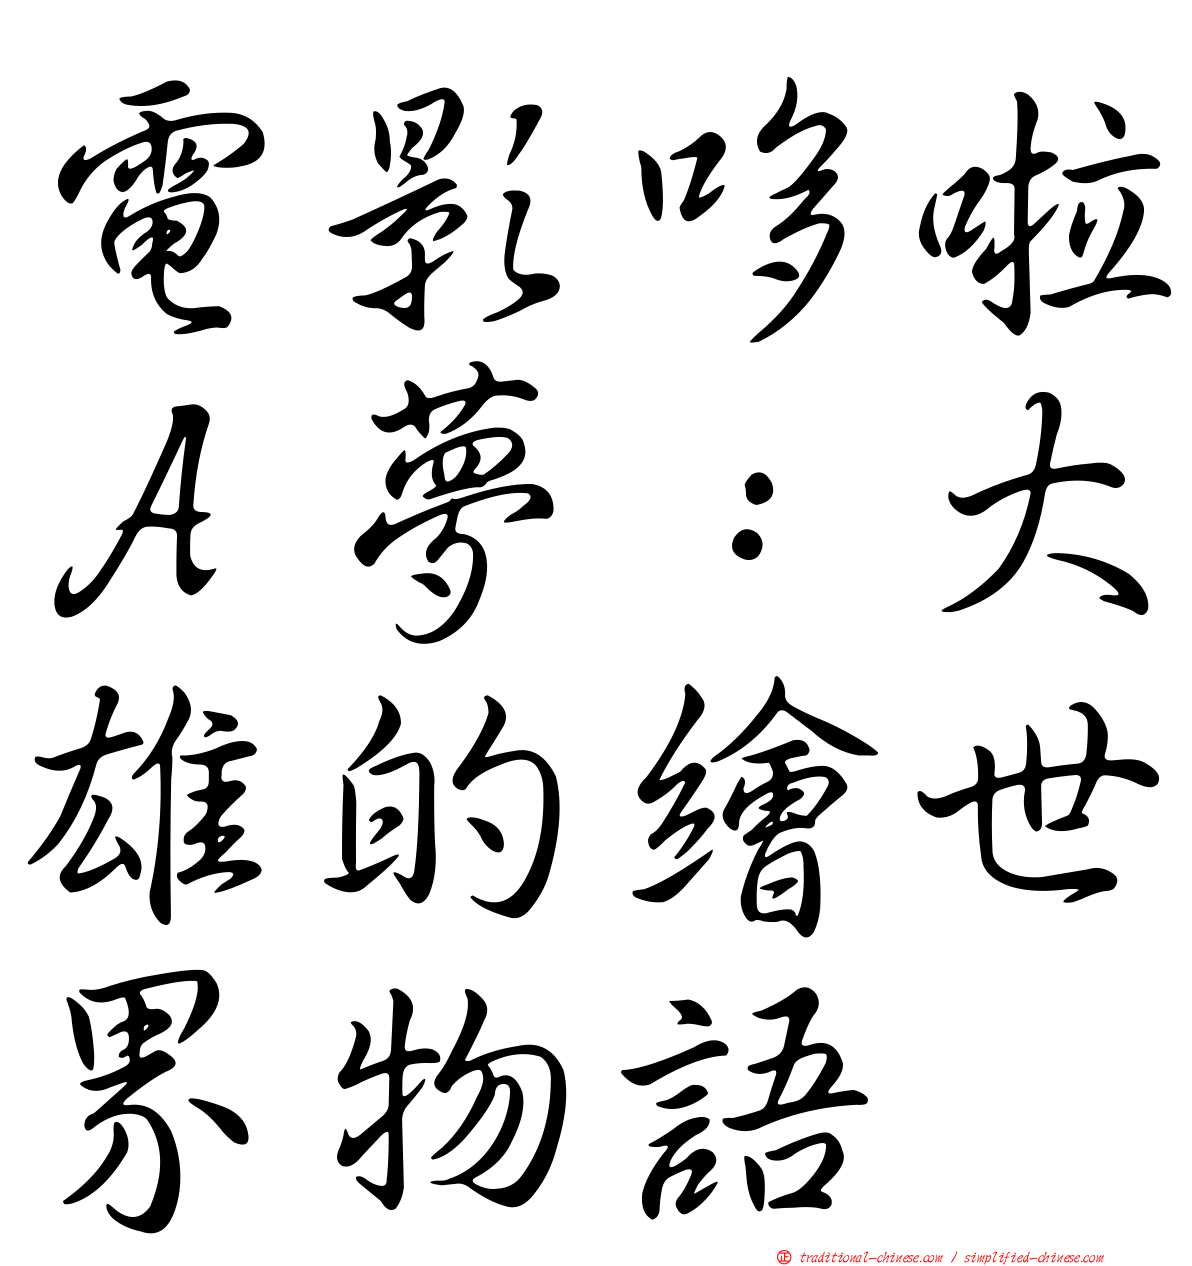 電影哆啦
A夢：大
雄的繪世
界物語
㊣ traditional-chinese.com / simplified-chinese.com